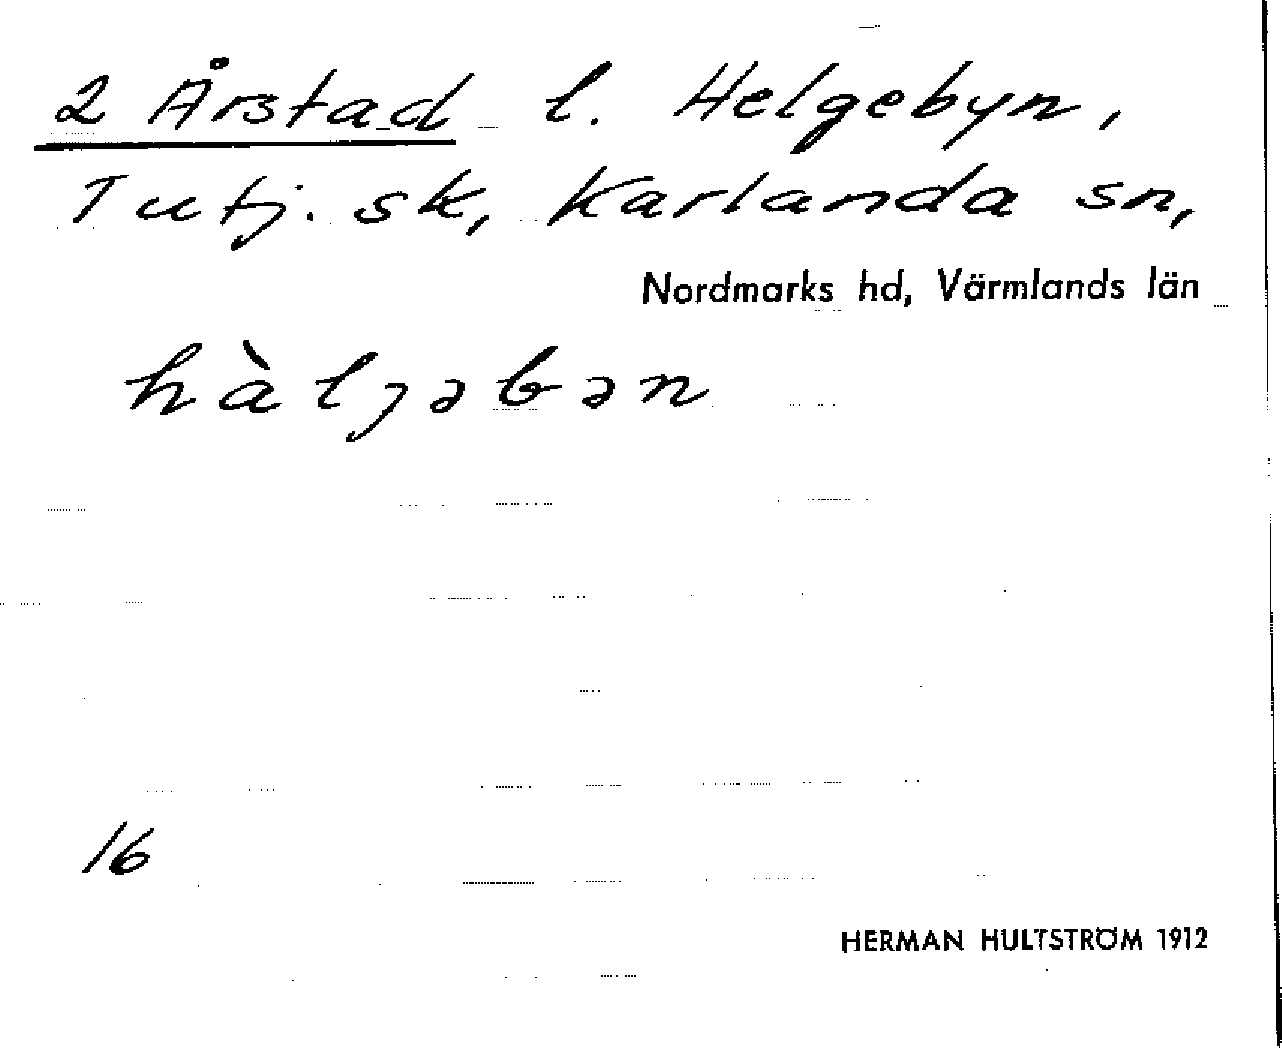 2 Årstad l. Helgebyn,
Tutj. sk, Karlanda sn,
Nordmarks hd, Värmlands län
hàlȷəbən
16
HERMAN HULTSTRÖM 1912